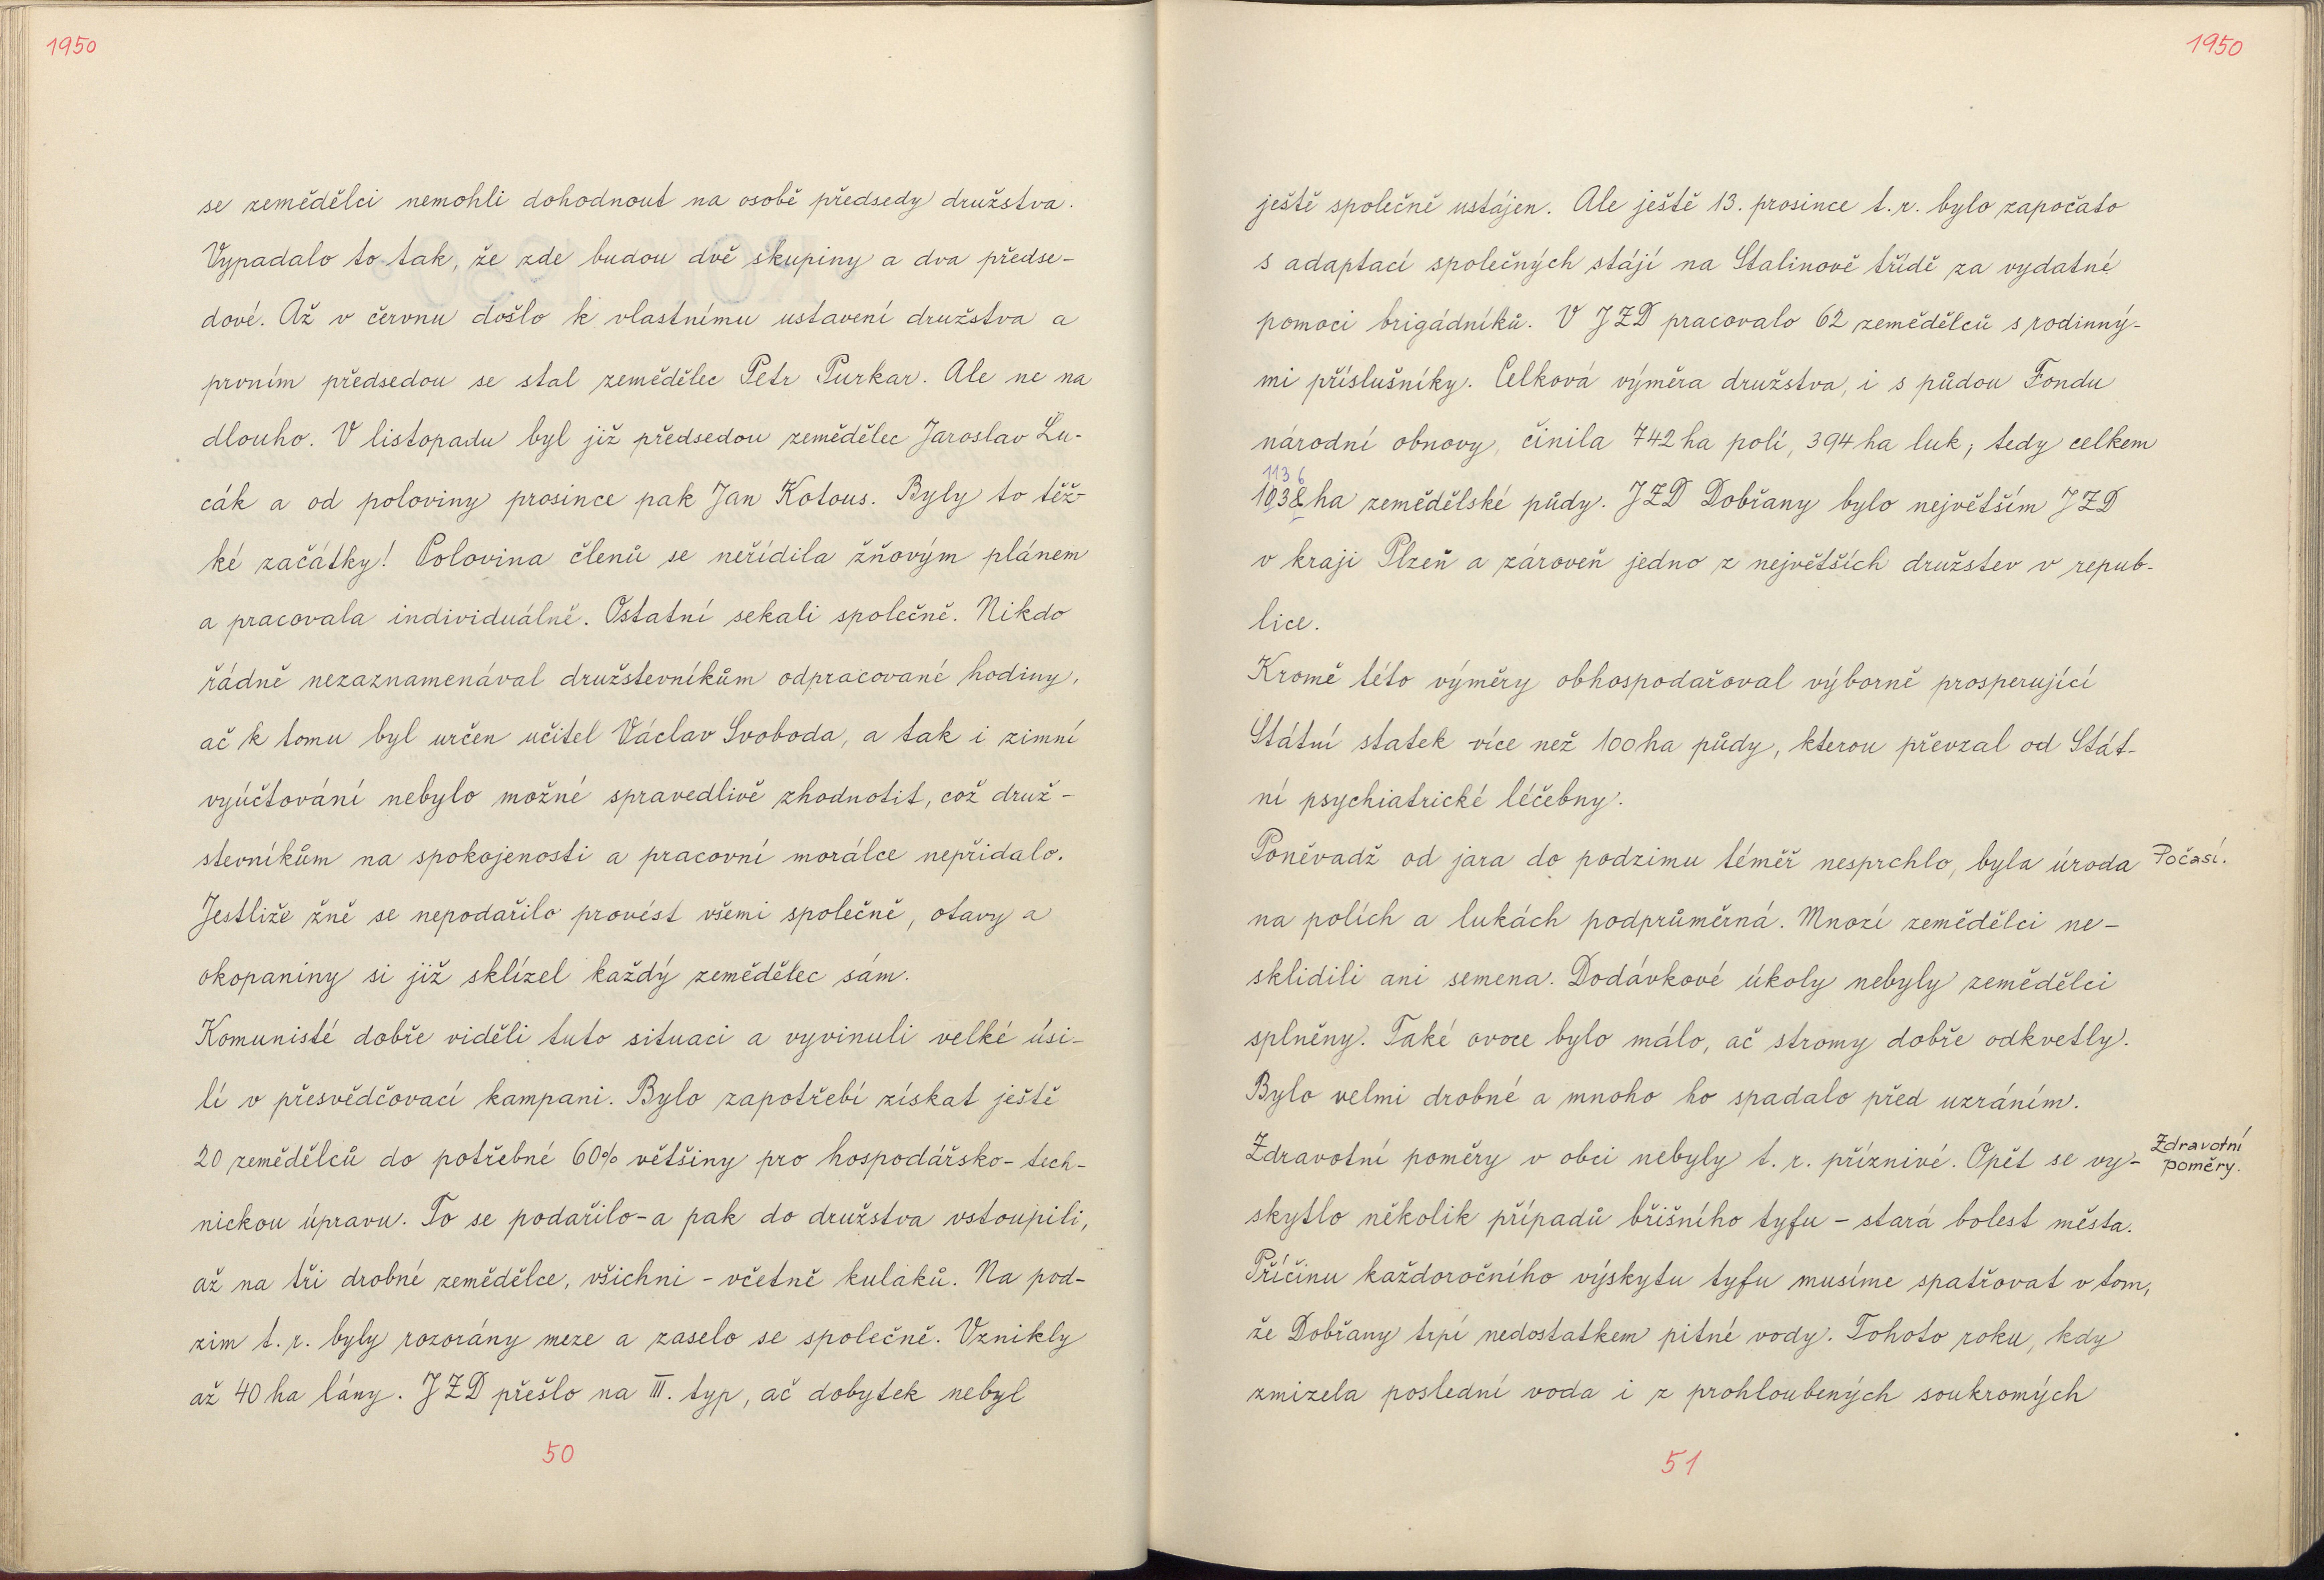 1950
se zemědělci nemohli dohodnout na osobě předsedy družstva.
Vypadalo to tak, že zde budou dvě skupiny a dva předse-
dové. Až v červnu došlo k vlastnímu ustavení družstva a
prvním předsedou se stal zemědělec Petr Purkar. Ale ne na
dlouho. V listopadu byl již předsedou zemědělec Jaroslav Lu-
cák a od poloviny prosince pak Jan Kotous. Byly to těž-
ké začátky! Polovina členů se neřídila žňovým plánem
a pracovala individuálně. Ostatní sekali společně. Nikdo
řádně nezaznamenával družstevníkům odpracované hodiny,
ač k tomu byl určen učitel Václav Svoboda, a tak i zimní
vyúčtování nebylo možné spravedlivě zhodnotit, což druž-
stevníkům na spokojenosti a pracovní morálce nepřidalo.
Jestliže žně se nepodařilo provést všemi společně, otavy a
okopaniny si již sklízel každý zemědělec sám.
Komunisté dobře viděli tuto situaci a vyvinuli velké úsi-
lí v přesvědčovací kampani. Bylo zapotřebí získat ještě
20 zemědělců do potřebné 60% většiny pro hospodářsko-tech-
nickou úpravu. To se podařilo-a pak do družstva vstoupili,
až na tři drobné zemědělce, všichni - včetně kulaků. Na pod-
zim t.r. byly rozorány meze a zaselo se společně. Vznikly
až 40 ha lány. JZD přešlo na III. typ, ač dobytek nebyl
50
1950
ještě společně ustájen. Ale ještě 13. prosince t.r. bylo započato
s adaptací společných stájí na Stalinově třídě za vydatné
pomoci brigádníků. V JZD pracovalo 62 zemědělců s rodinný-
mi příslušníky. Celková výměra družstva, i s půdou Fondu
národní obnovy, činila 742 ha polí, 394 ha luk; tedy celkem
1136
1038 ha zemědělské půdy. JZD Dobřany bylo největším JZD
v kraji Plzeň a zároveň jedno z největších družstev v repub-
lice.
Kromě této výměry obhospodařoval výborně prosperující
Státní statek více než 100 ha půdy, kterou převzal od Stát-
ní psychiatrické léčebny.
Poněvadž od jara do podzimu téměř nesprchlo, byla úroda Počasí.
na polích a lukách podprůměrná. Mnozí zemědělci ne-
sklidili ani semena. Dodávkové úkoly nebyly zemědělci
splněny. Také ovoce bylo málo, ač stromy dobře odkvetly.
Bylo velmi drobné a mnoho ho spadalo před uzráním.
Zdravotní poměry v obci nebyly t.r. příznivé. Opět se vy- Zdravotní
poměry.
skytlo několik případů břišního tyfu - stará bolest města.
Příčinu každoročního výskytu tyfu musíme spatřovat v tom,
že Dobřany trpí nedostatkem pitné vody. Tohoto roku, kdy
zmizela poslední voda i z prohloubených soukromých
51